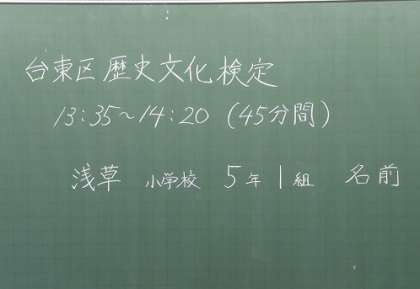 台東区歴史文化検定
13:35～14:20 (45分間)
浅草 小学校 5年 1組 名前